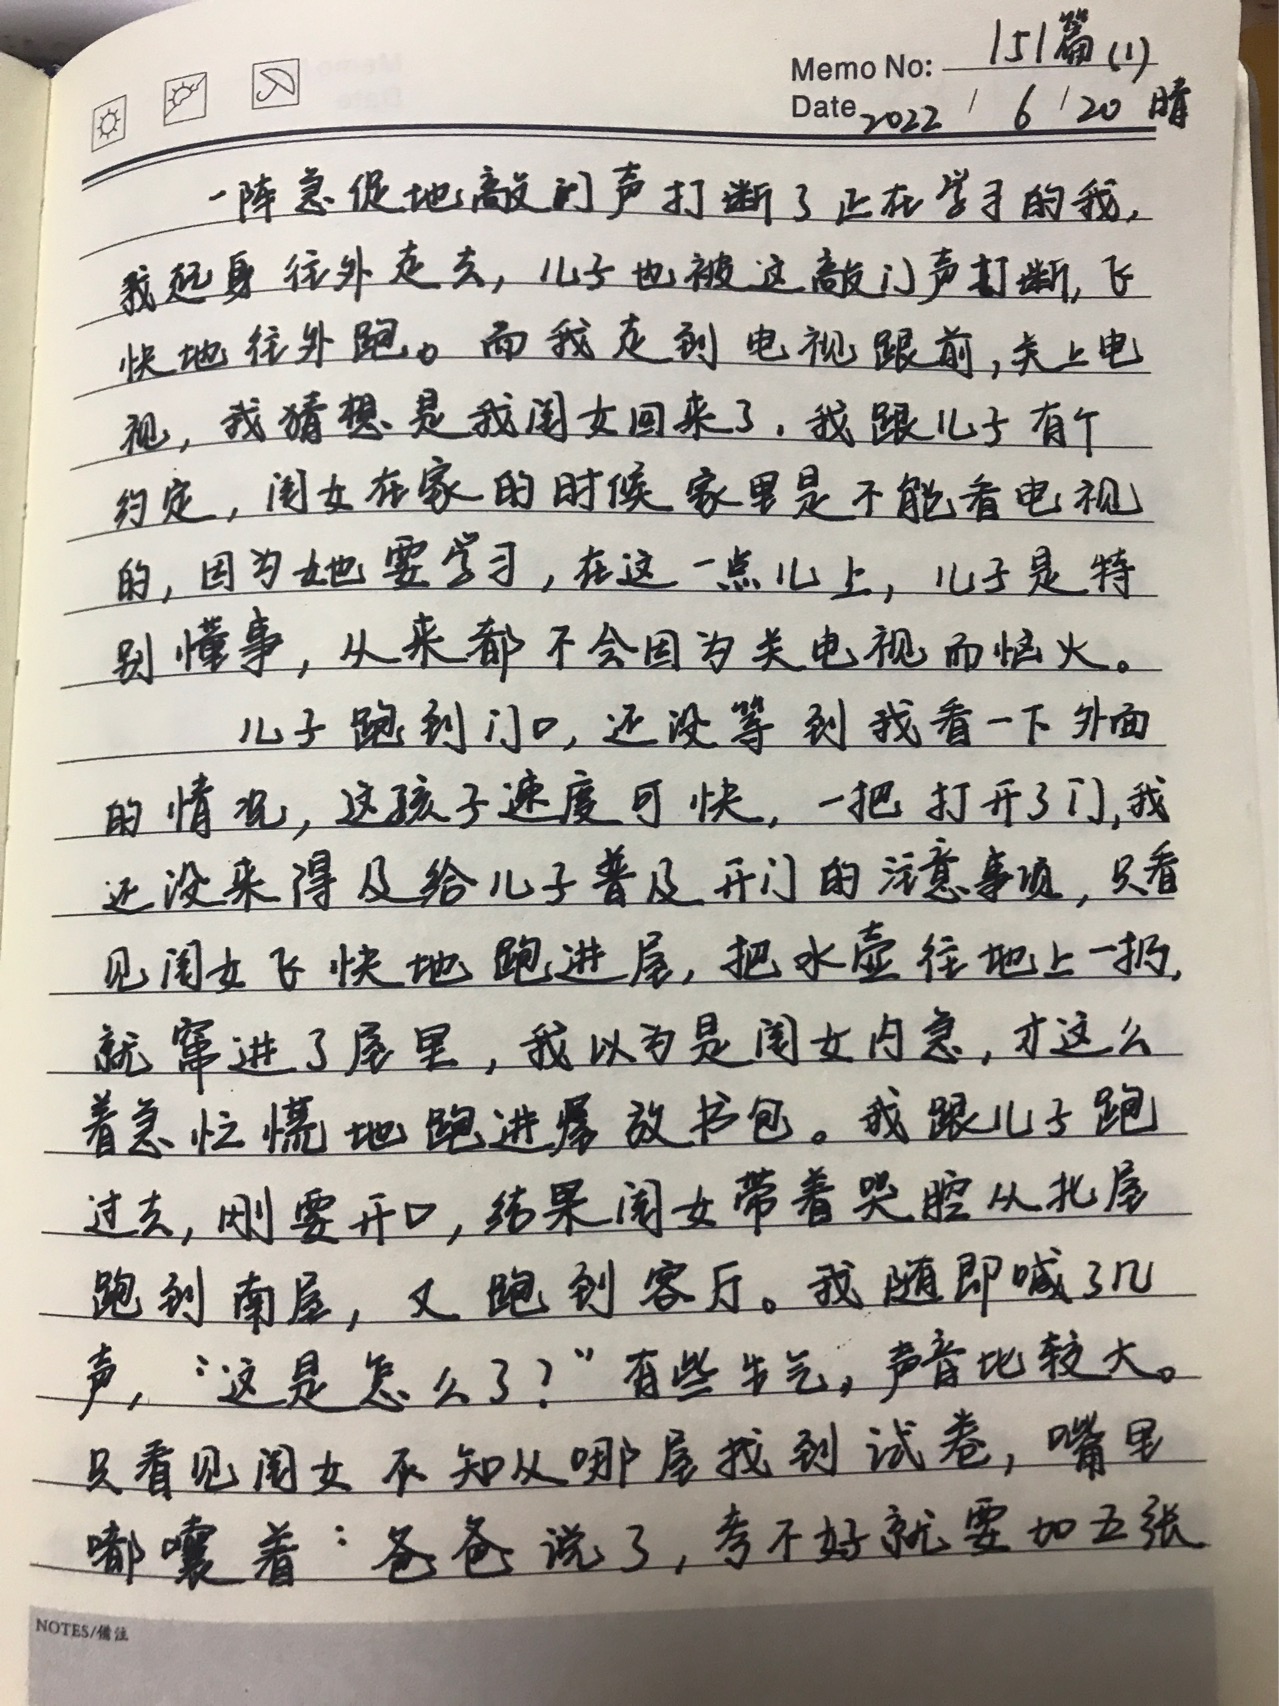 Memo No: 151篇(1)
Date 2022 / 6 / 20 晴
一阵急促地敲门声打断了正在学习的我,
我起身往外走去,儿子也被这敲门声打断,飞
快地往外跑。而我走到电视跟前,关上电
视,我猜想是我闺女回来了.我跟儿子有个
约定,闺女在家的时候家里是不能看电视
的,因为她要学习,在这一点儿上,儿子是特
别懂事,从来都不会因为关电视而恼火。
儿子跑到门口,还没等到我看一下外面
的情况,这孩子速度可快,一把打开了门,我
还没来得及给儿子普及开门的注意事项,只看
见闺女飞快地跑进屋,把水壶往地上一扔,
就窜进了屋里,我以为是闺女内急,才这么
着急忙慌地跑进屋放书包。我跟儿子跑
过去,刚要开口,结果闺女带着哭腔从北屋
跑到南屋,又跑到客厅。我随即喊了几
声,“这是怎么了?”有些生气,声音比较大。
只看见闺女不知从哪屋找到试卷,嘴里
嘟囔着:爸爸说了,考不好就要加五张
NOTES/備注